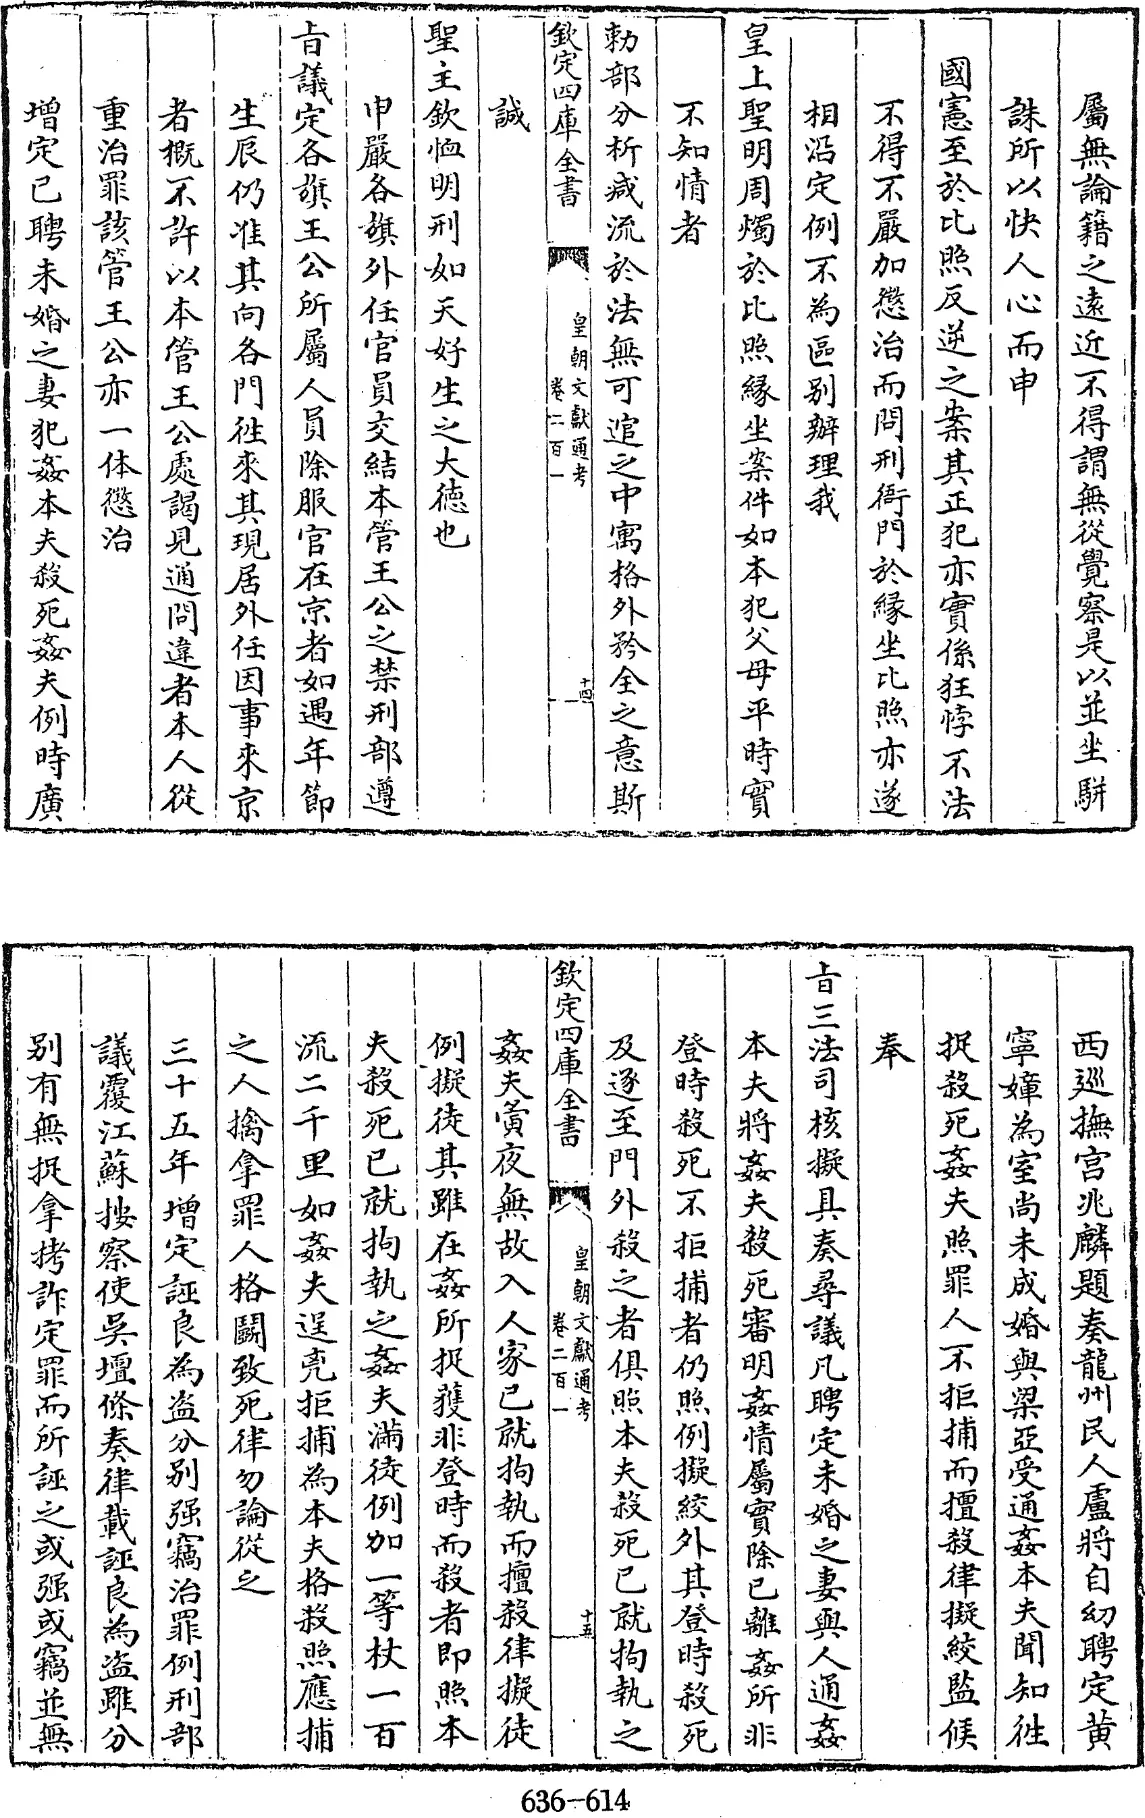 屬無論籍之遠近不得謂無從覺察是以並坐駢
誅所以快人心而申
國憲至於比照反逆之案其正犯亦實係狂悖不法
不得不嚴加懲治而問刑衙門於緣坐比照亦遂
相沿定例不為區别辦理我
皇上聖明周燭於比照緣坐案件如本犯父母平時實
不知情者
勅部分析減流於法無可逭之中寓格外矜全之意斯
誠
欽定四庫全書
皇朝文獻通考
卷二百一
十四
聖主欽恤明刑如天好生之大德也
申嚴各旗外任官員交結本管王公之禁刑部遵
㫖議定各旗王公所屬人員除服官在京者如遇年節
生辰仍准其向各門徃來其現居外任因事來京
者概不許以本管王公處謁見通問違者本人從
重治罪該管王公亦一体懲治
增定已聘未婚之妻犯姦本夫殺死姦夫例時廣
西廵撫宫兆麟題奏龍州民人盧將自幼聘定黄
寧嫜為室尚未成婚與梁亞受通姦本夫聞知徃
捉殺死姦夫照罪人不拒捕而擅殺律擬絞監候
奉
㫖三法司核擬具奏尋議凡聘定未婚之妻與人通姦
本夫將姦夫殺死審明姦情屬實除已離姦所非
登時殺死不拒捕者仍照例擬絞外其登時殺死
及逐至門外殺之者俱照本夫殺死已就拘執之
欽定四庫全書
皇朝文獻通考
卷二百一
十五
姦夫夤夜無故入人家已就拘執而擅殺律擬徒
例擬徒其雖在姦所捉獲非登時而殺者即照本
夫殺死已就拘執之姦夫滿徒例加一等杖一百
流二千里如姦夫逞兇拒捕為本夫格殺照應捕
之人擒拿罪人格鬭致死律勿論從之
三十五年增定誣良為盗分别强竊治罪例刑部
議覆江蘇按察使吳壇條奏律載誣良為盗雖分
别有無捉拿拷詐定罪而所誣之或强或竊並無
636-614